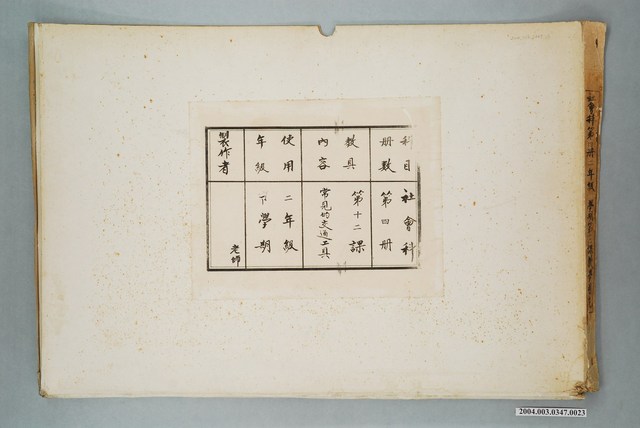 科目 社會科
冊數 第四冊
教具 第十二課
內容 常見的交通工具
使用 二年級
年級 下學期
製作者 老師
2004.003.0347.0023